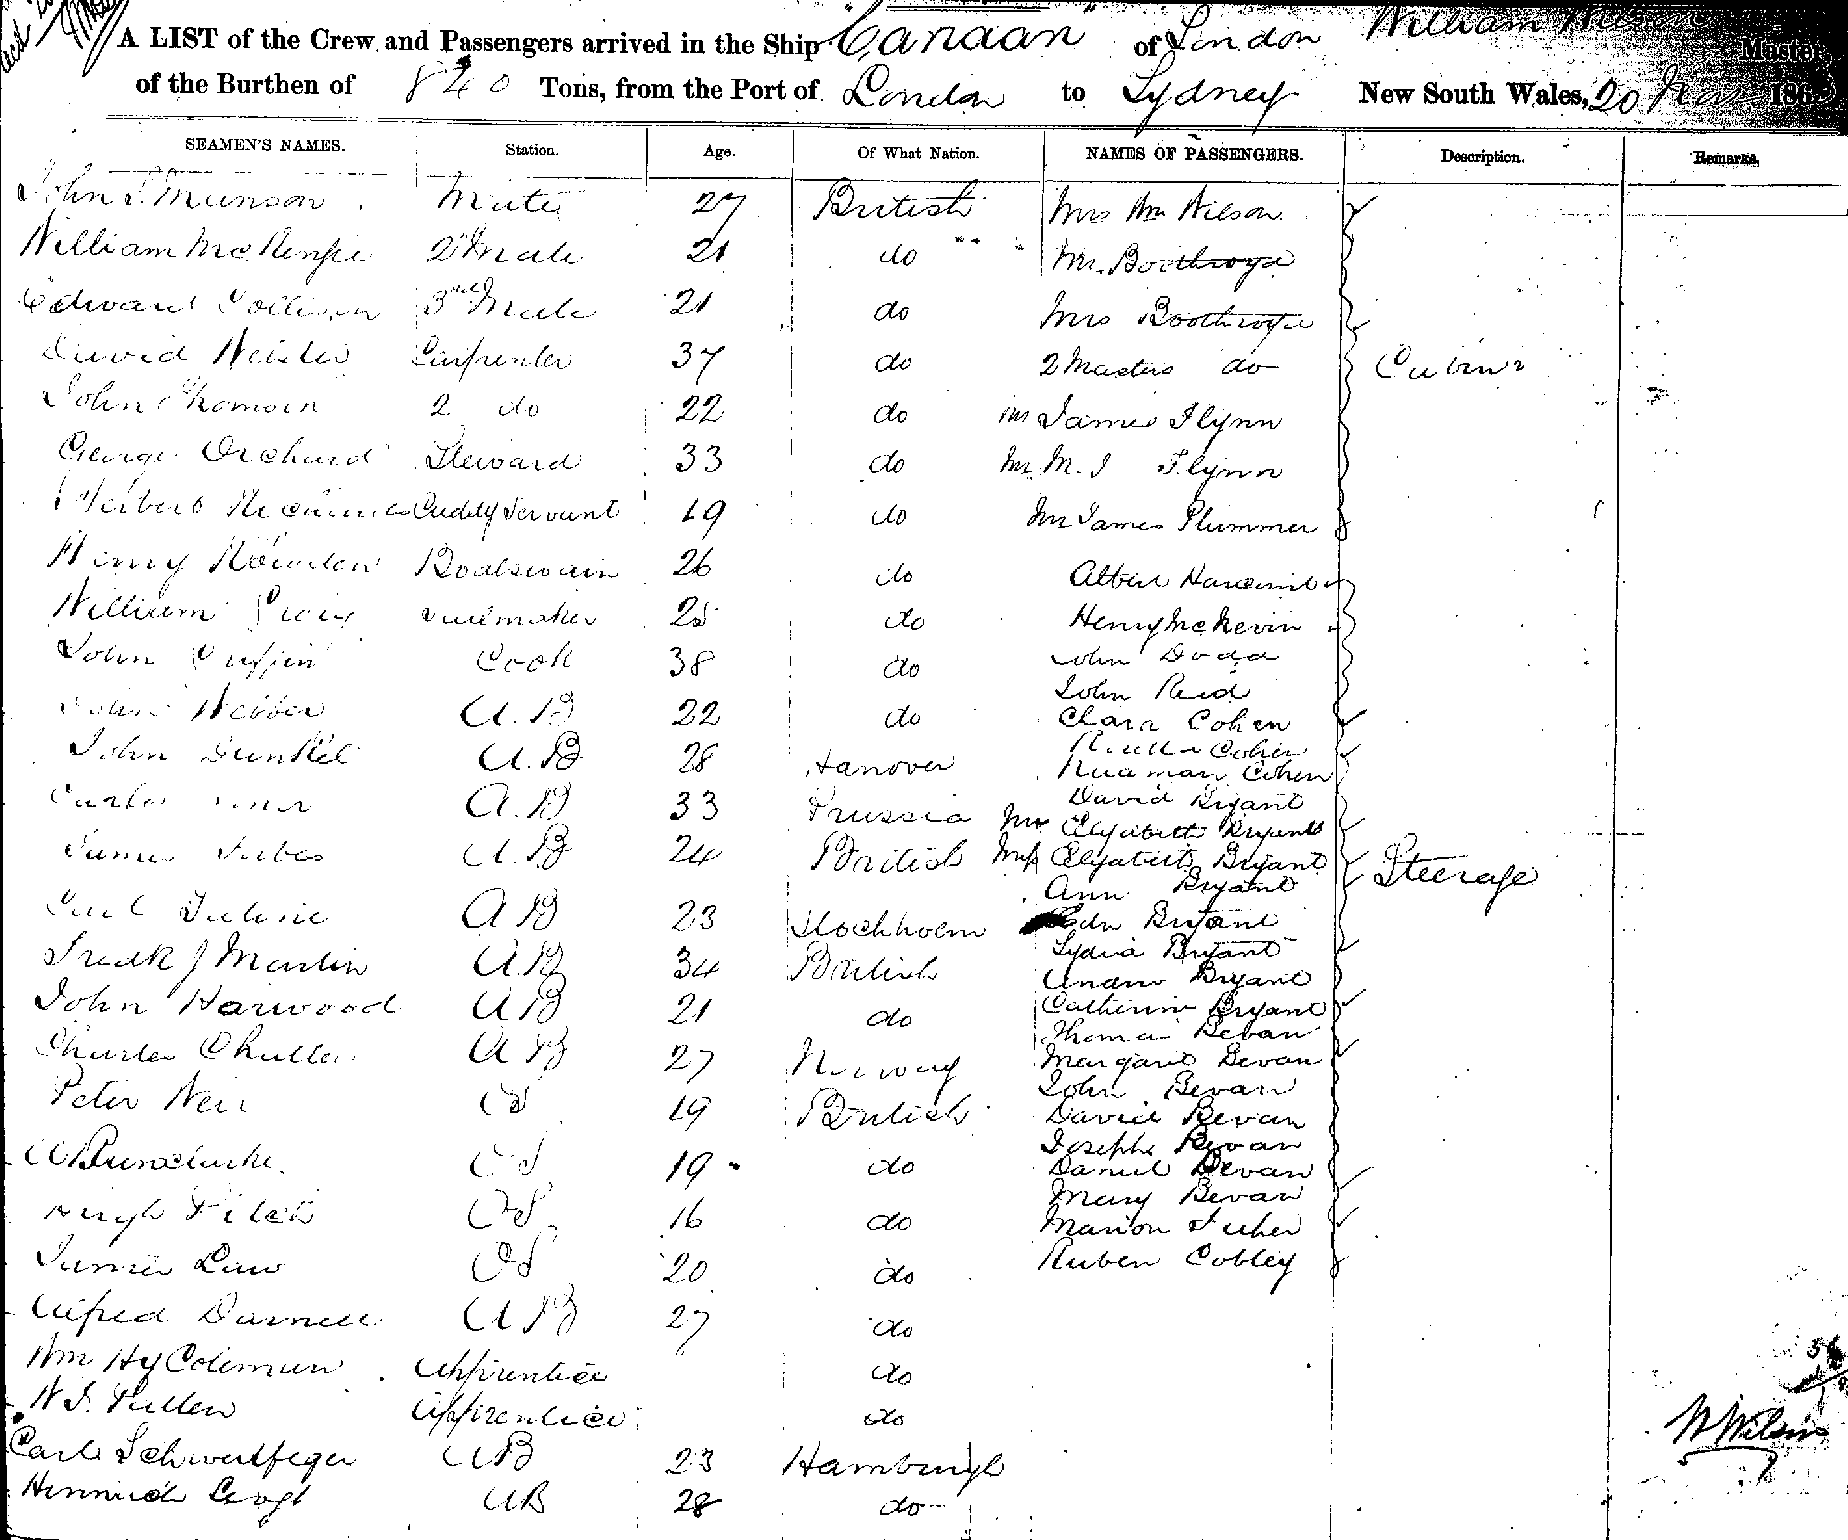 A LIST of the Crew and Passengers arrived in the Ship "Canaan" of London William Wilson Master
of the Burthen of 840 Tons, from the Port of London to Sydney New South Wales, 20 186
SEAMEN'S NAMES. Station. Age. Of What Nation. NAMES OF PASSENGERS. Description. Remarks.
John S. Munson Mate 27 British Mrs Wm Wilson
William McKenzie 2d Mate 21 do Mr. Boothroyd
Edward 3rd Mate 21 do Mrs Boothroyd
David Carpenter 37 do 2 Masters do Cabin
John Thomson 2 do 22 do Mr James Flynn
George Orchard Steward 33 do Mr. M. J Flynn
Herbert Cuddy Servant 19 do Mr James Plummer
Henry Boatswain 26 do Albert
William Craig Sailmaker 25 do Henry McKevin
John Cook 38 do John Dodd
John Reid
John Webber A.B 22 do Clara Cohen
John Dunkel A.B 28 Hanover Cohen
Cohen
Carlos A.B 33 Prussia David Bryant
Mrs Elizabeth Bryant
James Forbes A.B 24 British Miss Elizabeth Bryant Steerage
Ann Bryant
Carl A B 23 Stockholm Edn Bryant
Lydia Bryant
Fredk J Martin A B 34 British Andrew Bryant
John Harwood A B 21 do Catherine Bryant
Thomas Bevan
Charles A B 27 Norway Margaret Bevan
John Bevan
Peter Weir OS 19 British David Bevan
Joseph Bevan
OS 19 do Daniel Bevan
Mary Bevan
Hugh OS 16 do Marion
James Law OS 20 do Ruben Cobley
Alfred Darnell A B 27 do
Wm Hy Coleman Apprentice do
W. J. Pullen Apprentice do
Carl Schwertfeger AB 23 Hamburgh
AB 28 do
W Wilson